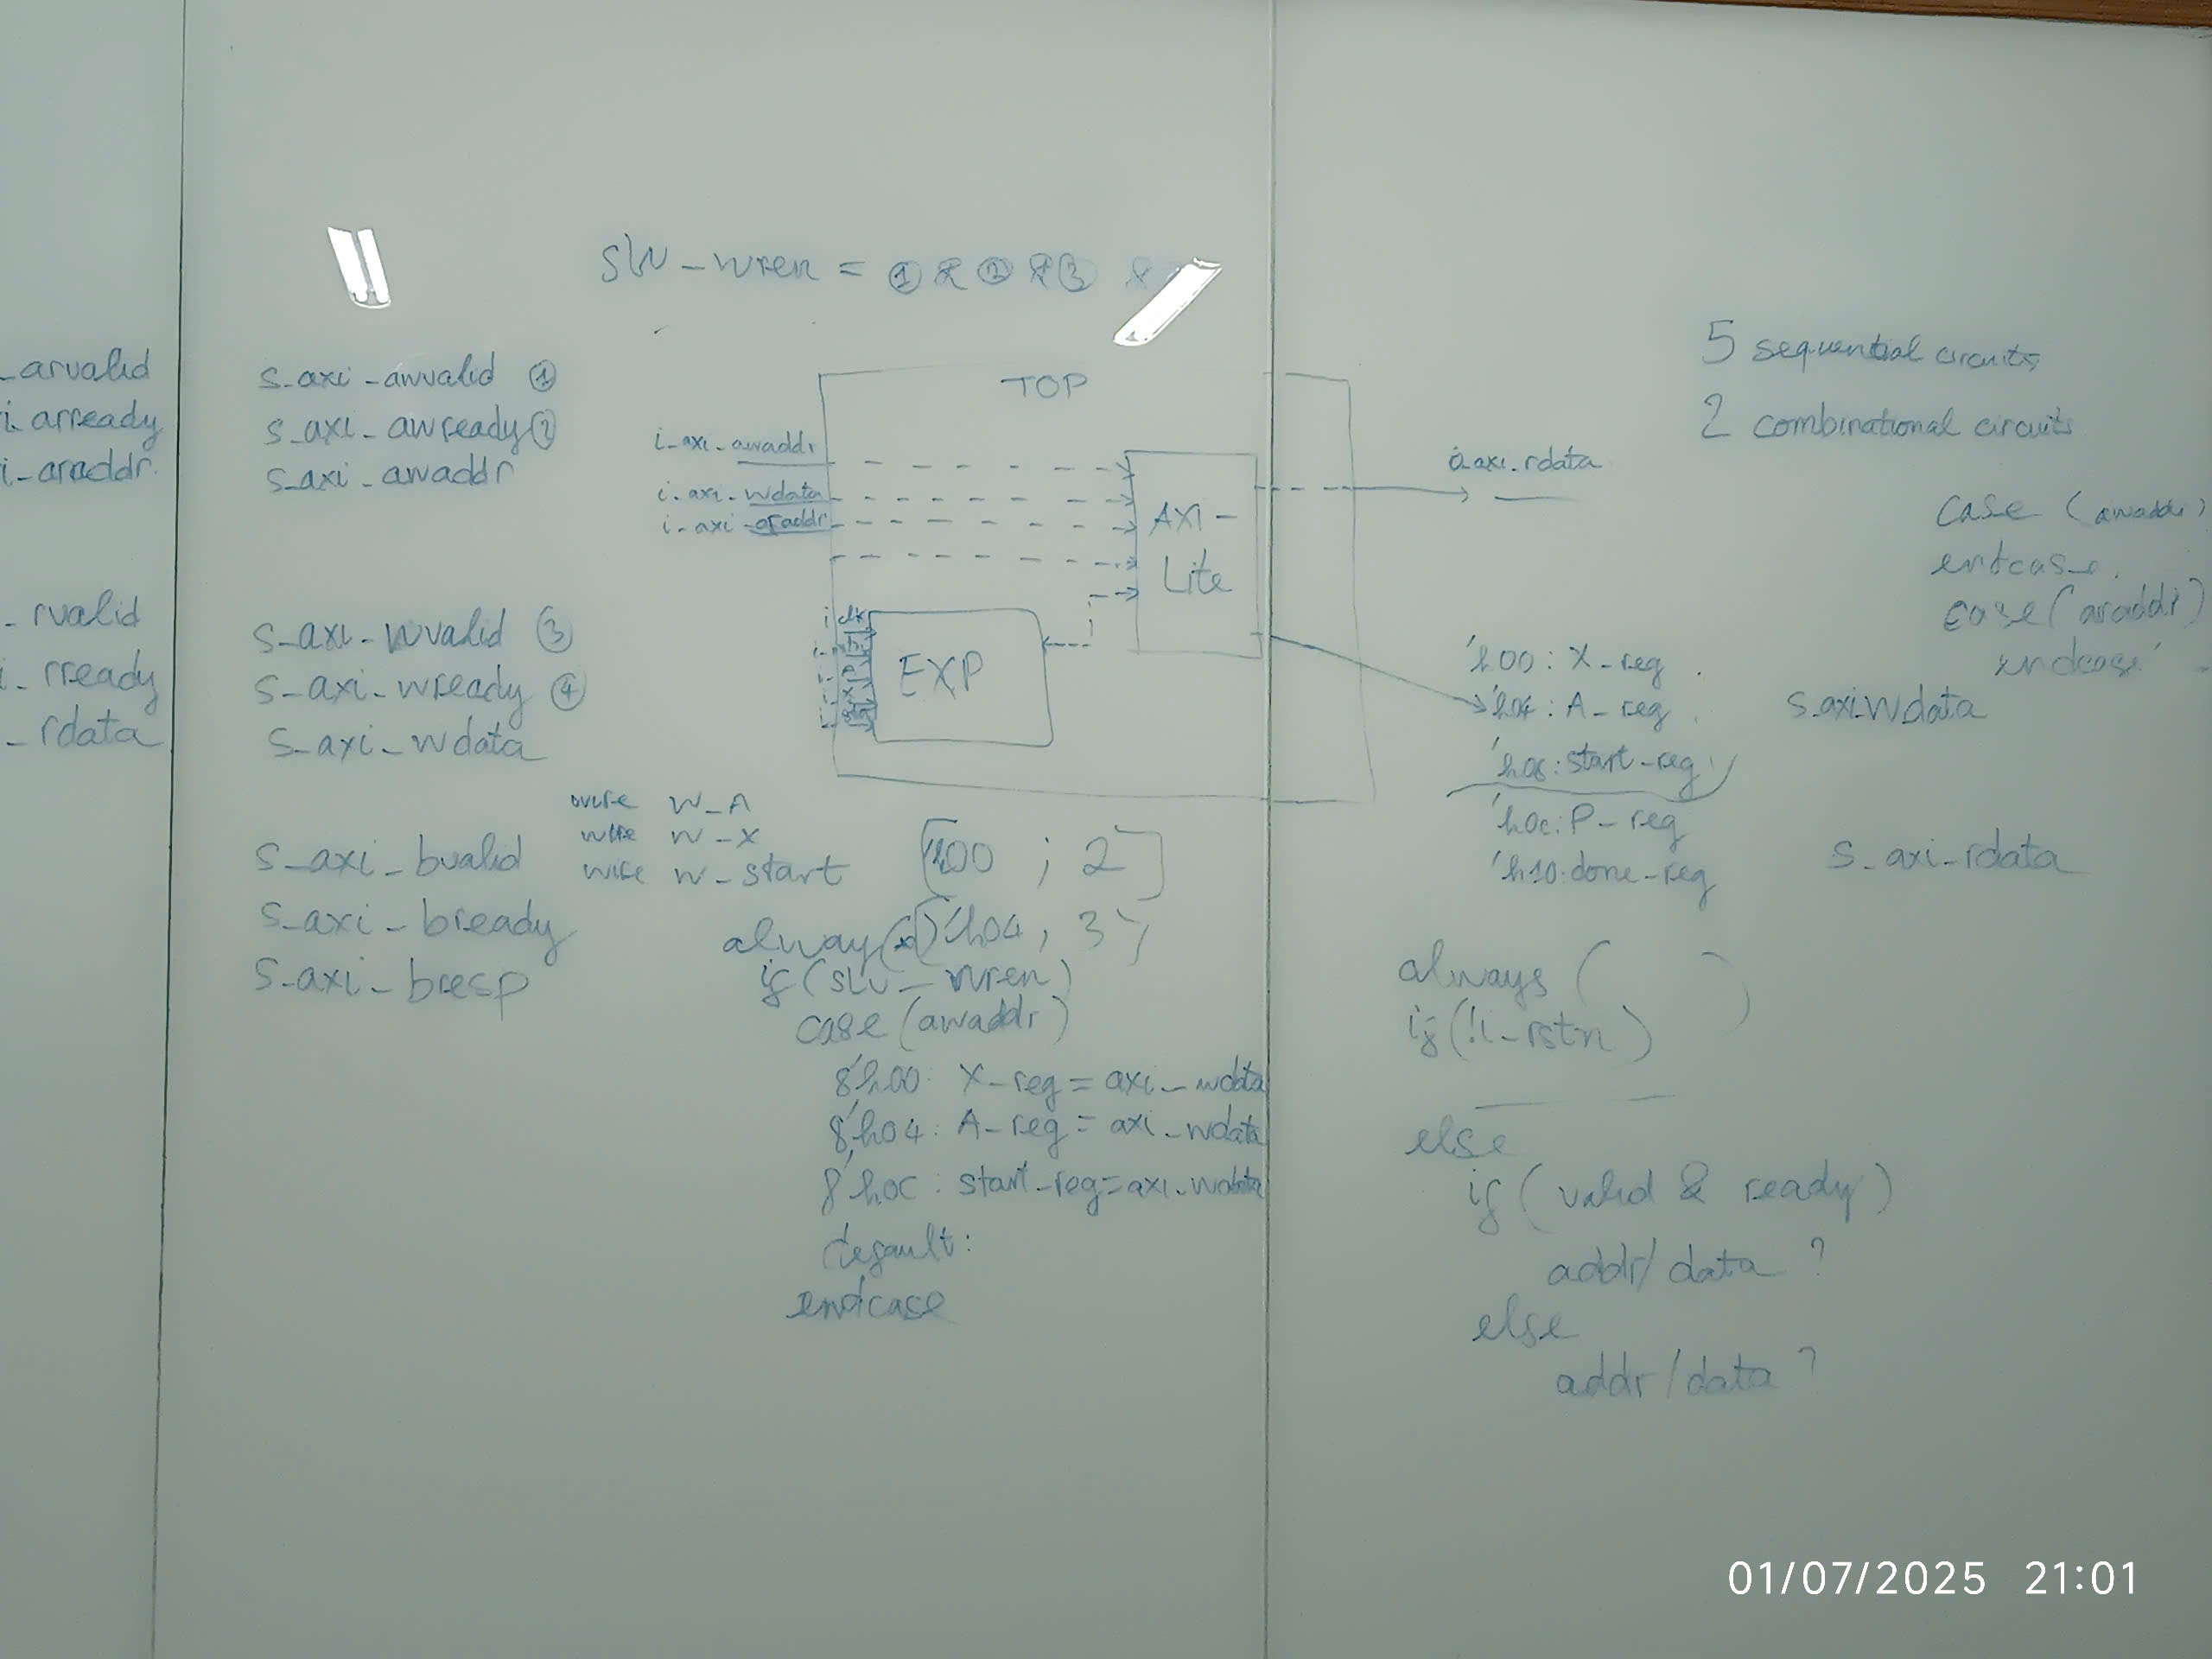 slv_wren = ① & ② & ③ &
_arvalid
i_arready
i_araddr
_rvalid
i_rready
_rdata
s_axi_awvalid ①
s_axi_awready ②
s_axi_awaddr
s_axi_wvalid ③
s_axi_wready ④
s_axi_wdata
s_axi_bvalid
s_axi_bready
s_axi_bresp
TOP
i_axi_awaddr
i_axi_wdata
i_axi_araddr
AXI-
Lite
i_clk
EXP
o_axi_rdata
wire w_A
wire w_x
wire w_start
['h00 ; 2]
'h04, 3
always(*)
if(slv_wren)
case(awaddr)
8'h00: X_reg = axi_wdata
8'h04: A_reg = axi_wdata
8'h0C: start_reg=axi_wdata
default:
endcase
5 sequential circuits
2 combinational circuits
case (awaddr)
endcase
case(araddr)
endcase
'h00: X_reg
'h04: A_reg
'h08: start_reg
'h0C: P_reg
'h10: done_reg
s_axi_wdata
s_axi_rdata
always ( )
if(!i_rstn)
else
if( valid & ready)
addr/data ?
else
addr/data ?
01/07/2025 21:01